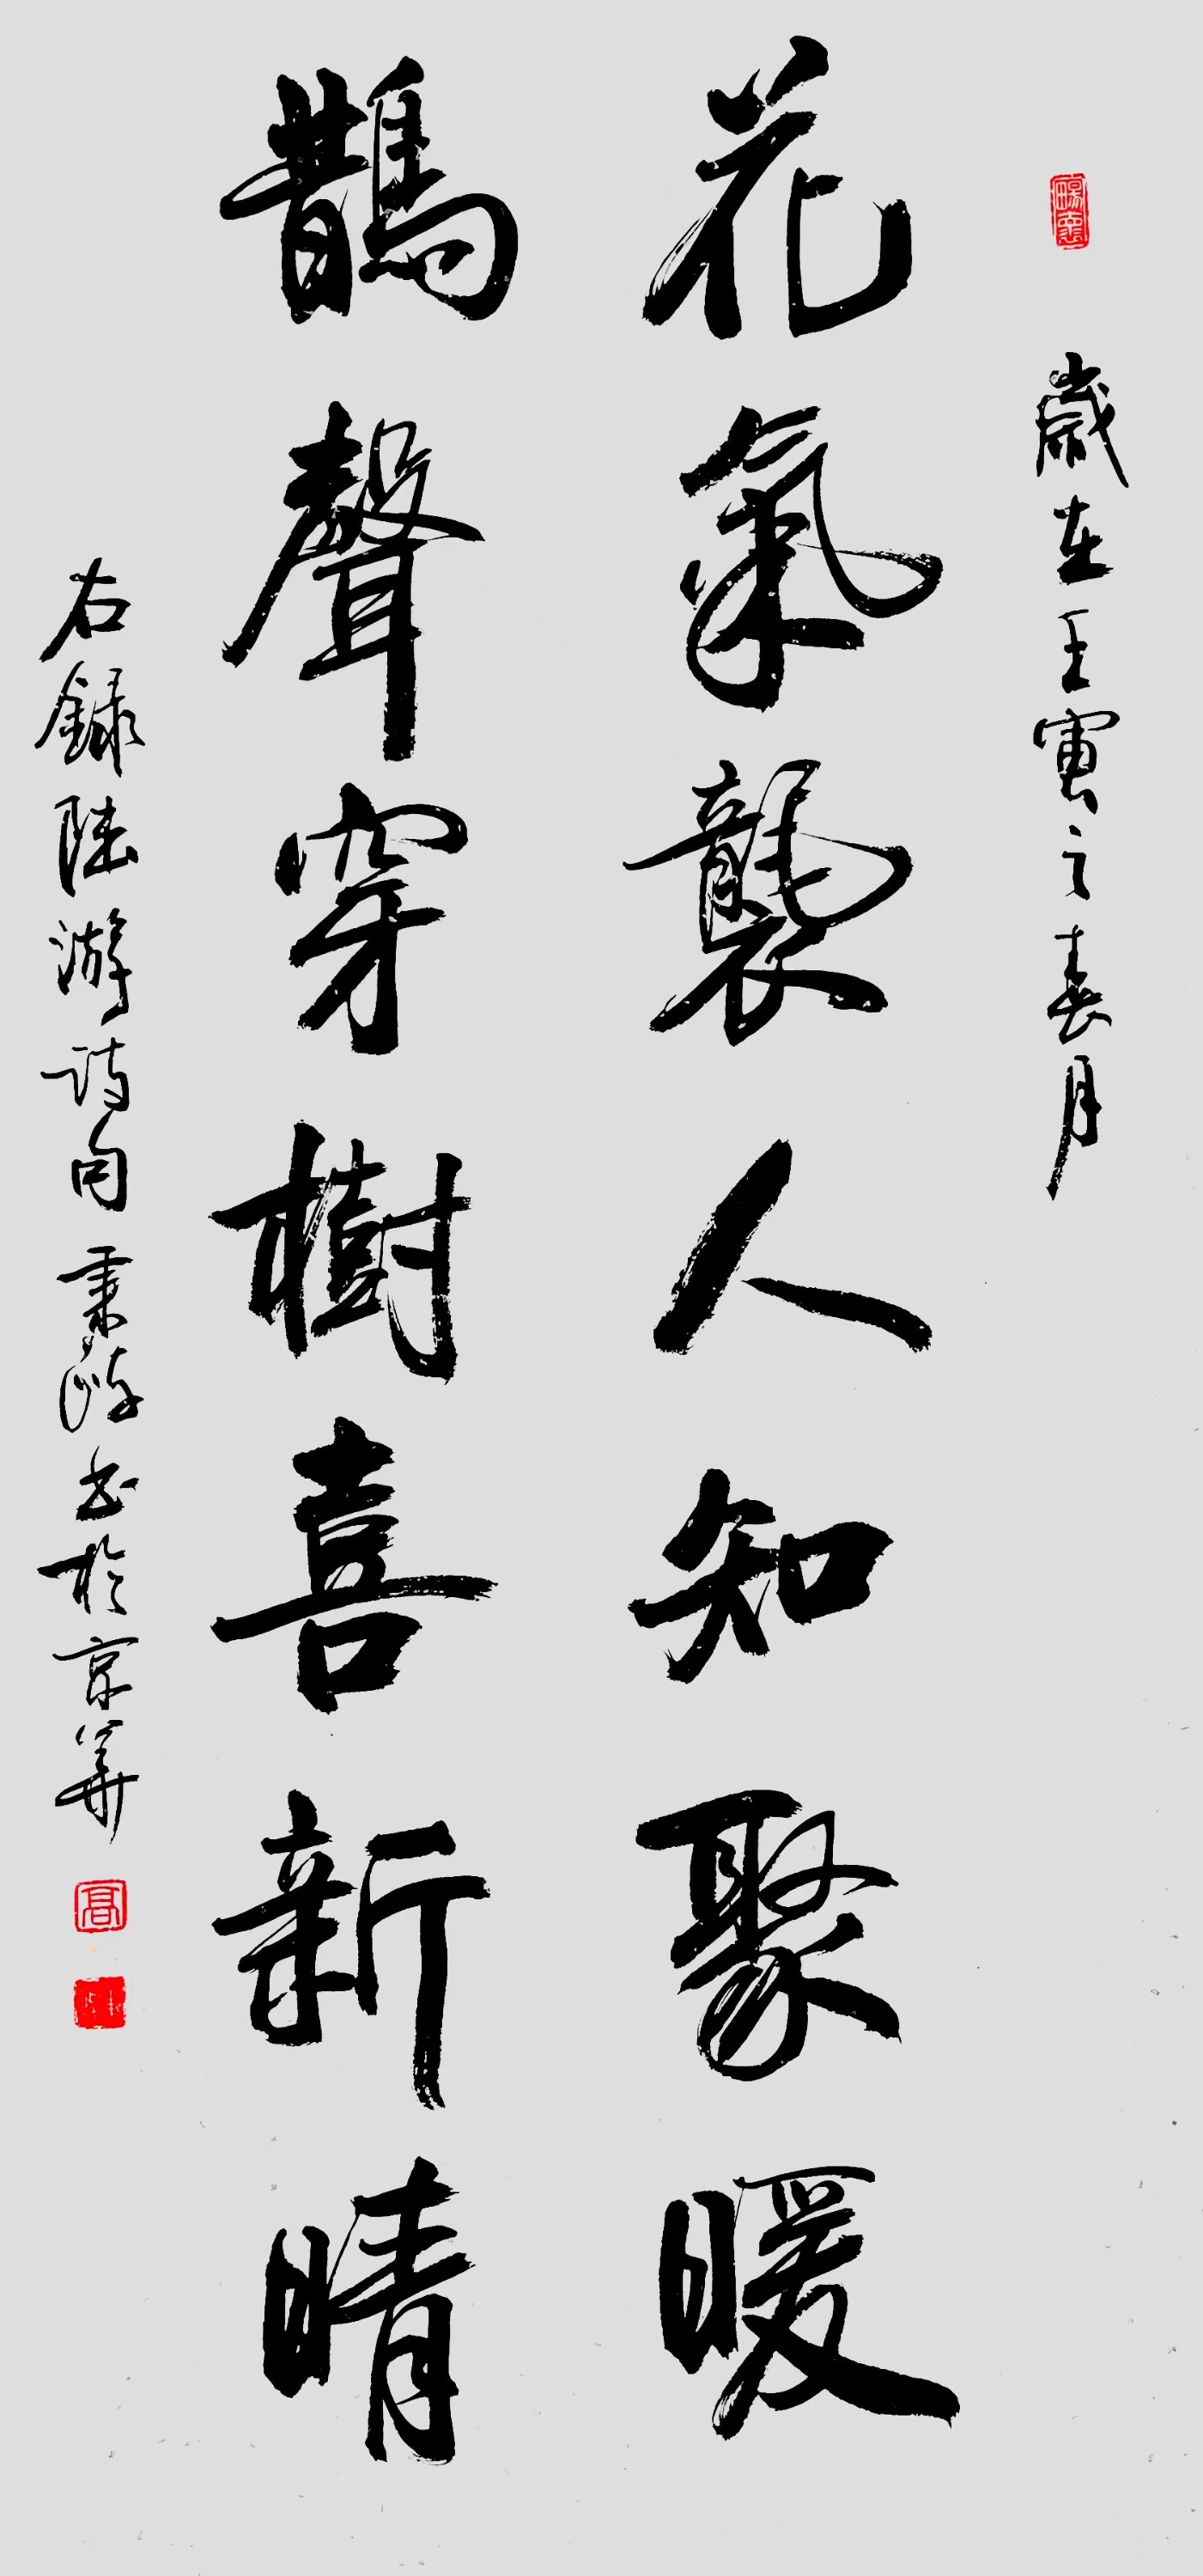 歲在壬寅之春月
花氣襲人知聚暖
鵲聲穿樹喜新晴
右録陸游詩句 秉 書於京華
高